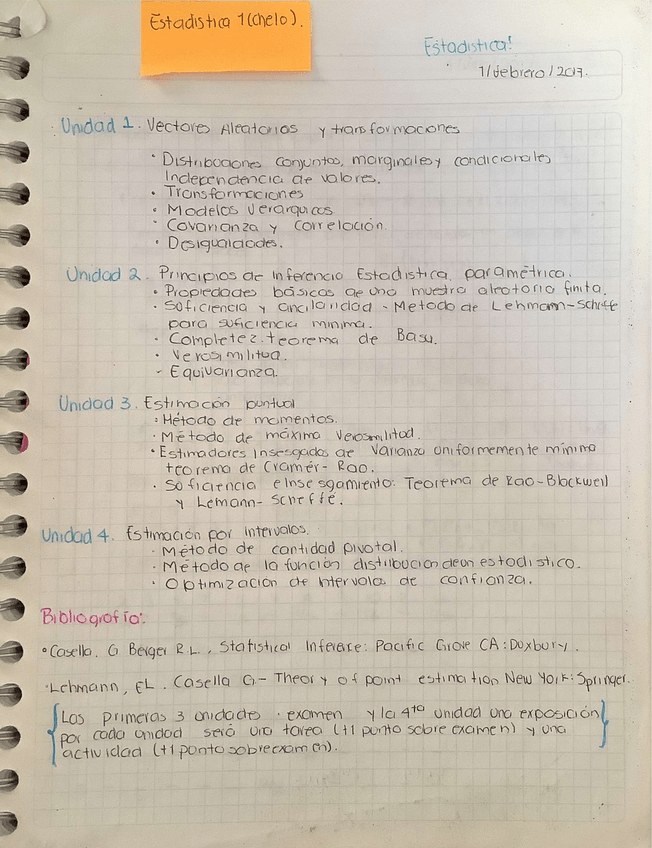 Estadistica 1 (Chelo).
Estadistica!
1/febrero/2017.
Unidad 1. Vectores Aleatorios y transformaciones
• Distribuciones conjuntas, marginales y condicionales
Independencia de valores.
• Transformaciones
• Modelos Jerarquicos
• Covarianza y correlación.
• Desigualdades.
Unidad 2. Principios de Inferencia Estadistica parametrica.
• Propiedades básicas de una muestra aleatoria finita.
• Suficiencia y ancilaridad - Metodo de Lehmann-Scheffe
para suficiencia minima.
• Completez. teorema de Basu.
• Verosimilitud.
- Equivarianza.
Unidad 3. Estimación puntual
• Método de momentos.
• Método de máxima verosimilitud.
• Estimadores Insesgados de Varianza uniformemente mínima
teorema de Cramér-Rao.
• Suficiencia e Insesgamiento: Teorema de Rao-Blackwell
y Lemann-Scheffé.
Unidad 4. Estimación por intervalos.
• Método de cantidad pivotal.
• Método de la función distribucion de un estadistico.
• Optimización de Intervalos de confianza.
Bibliografía:
•Casella. G Berger R L., Statistical Inference: Pacific Grove CA: Duxbury.
•Lehmann, EL. Casella G- Theory of point estimation New York: Springer.
{Las primeras 3 unidades · examen y la 4ta unidad una exposición}
por cada unidad será una tarea (+1 punto sobre examen) y una
actividad (+1 punto sobre examen).